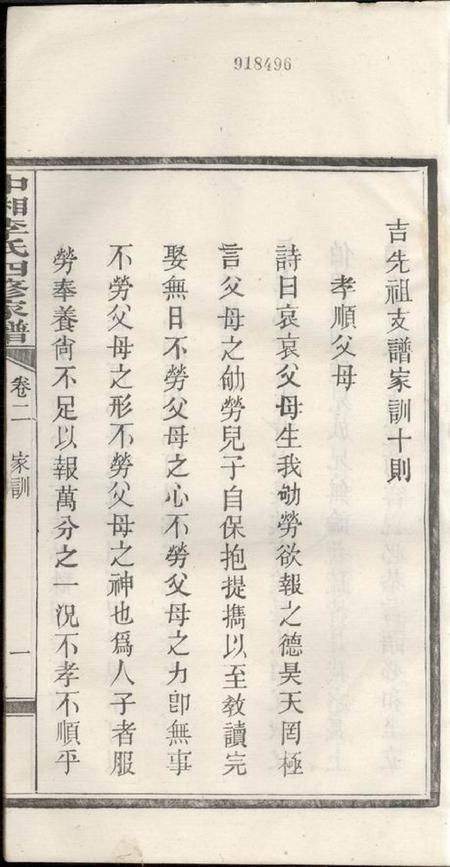 918496
吉先祖支譜家訓十則
孝順父母
詩曰哀哀父母生我劬勞欲報之德昊天罔極
言父母之劬勞兒子自保抱提攜以至教讀完
娶無日不勞父母之心不勞父母之力卽無事
不勞父母之形不勞父母之神也爲人子者服
勞奉養尙不足以報萬分之一況不孝不順乎
中湘李氏四修家譜
卷二
家訓
一